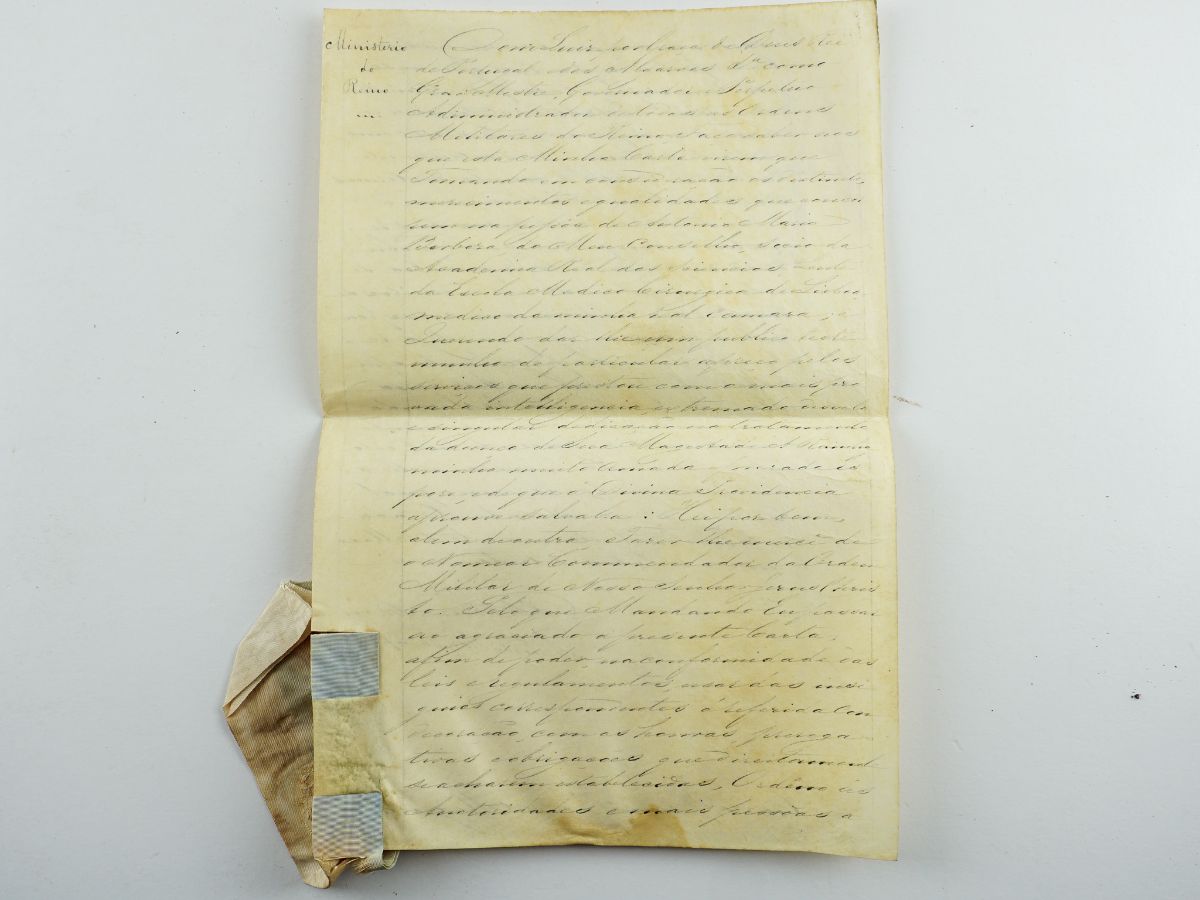 Ministerio
do
Reino
Dom Luiz por Graça de Deus Rei
de Portugal e dos Algarves &ª como
Grão Mestre, Governador e Perpetuo
Administrador de todas as Ordens
Militares do Reino Faço saber aos
que esta Minha Carta virem que
Tomando em consideração os
merecimentos e qualidades que concor
rem na pessoa de Antonio Maria
Barbosa, do Meu Conselho, socio da
Academia Real das Sciencias, Lente
da Escola Medico Cirurgica de Lisboa
medico da minha real camara, e
Querendo dar lhe um publico teste
munho de particular apreço pelos
serviços que prestou com a mais pro
vada intelligencia, extremado
e singular dedicação no tratamento
da doença de Sua Magestade A Rainha
minha muito amada e prezada Es
posa, de que á Divina Providencia
aprouve salvala: Hei por bem,
alem de outra Fazer lhe mercê de
o Nomear Commendador da Ordem
Militar de Nosso Senhor Jesus Chris
to. Pelo que, Mandando Eu passar
ao agraciado a presente Carta,
afim de poder, na conformidade das
leis e regulamentos, usar das insi
gnias correspondentes á referida Con
decoração, com as honras, preroga
tivas e obrigações que directamente
se acham estabelecidas, Ordeno ás
Auctoridades e mais pessoas a